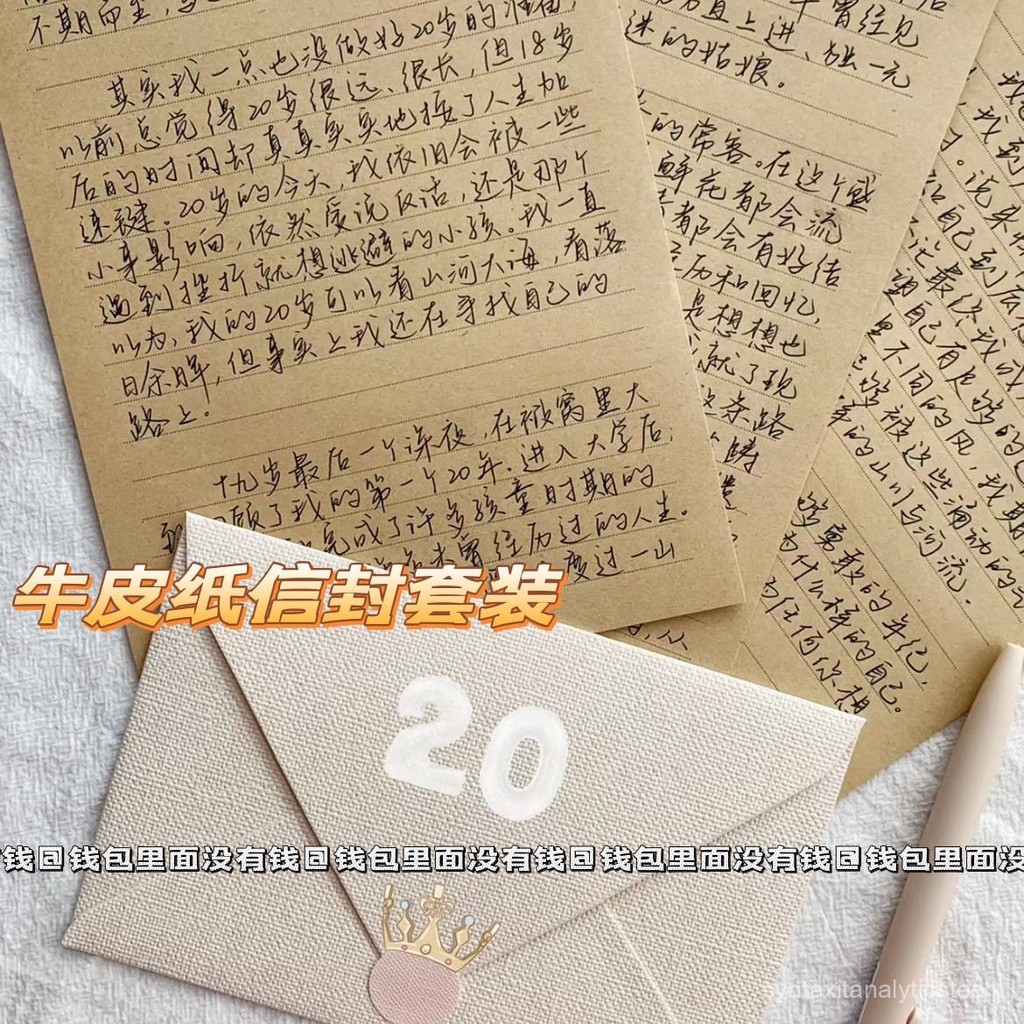 不期而至,
其实我一点也没做好20岁的准备,
以前总觉得20岁很远、很长,但18岁
后的时间却真真实实地按了人生加
速键。20岁的今天,我依旧会被一些
小事影响,依然爱说反话,还是那个
遇到挫折就想逃避的小孩。我一直
以为,我的20岁可以看山河大海,看落
日余晖,但事实上我还在寻找自己的
路上。
十九岁最后一个深夜,在被窝里大
顾了我的第一个20年.进入大学后,
完成了许多孩童时期的
未曾经历过的人生.
度过一山
曾经见
直上进、独一元
迷的姑娘。
的常客。在这个盛
鲜花都会流
都会有好结
历和回忆,
是想想也
就了现
条路
我到
说来
自己到底
最终我成
自己有足够的
里不同的风,我期
够被这些涌动的
的山川与河流.
够勇敢的年纪,
为什么样的自己。
任何你想
从
牛皮纸信封套装
20
钱@钱包里面没有钱@钱包里面没有钱@钱包里面没有钱@钱包里面没